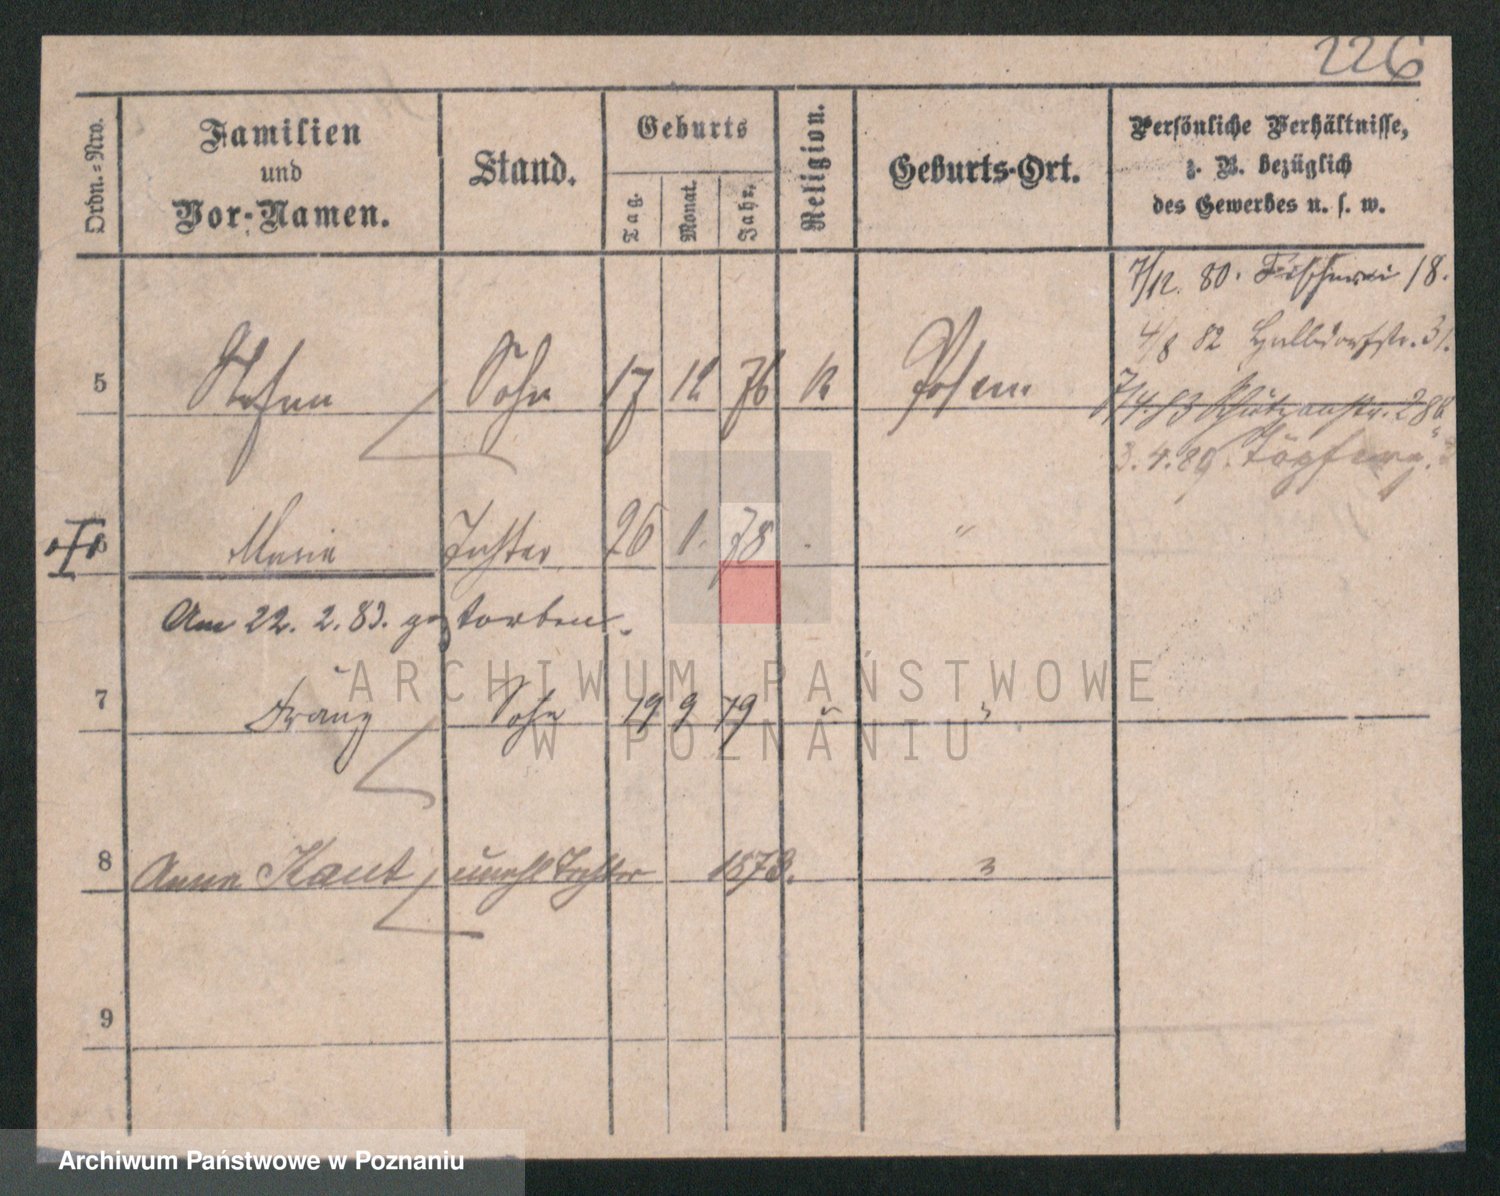 226
Ordn.-Nro.
Familien
und
Vor-Namen.
Stand.
Geburts
Tag.
Monat.
Jahr.
Religion.
Geburts-Ort.
Persönliche Verhältnisse,
z. B. bezüglich
des Gewerbes u. s. w.
7/12. 80. Fischerei 18.
4/8 82 Halbdorfstr. 31.
5 Stefan Sohn 17 12 76 K Posen
7/4. 83 Schützenstr. 28b
3. 4. 89. Töpferg.
Marie Tochter 26 1. 78 "
Am 22. 2. 83. gestorben.
7 Franz Sohn 19 9 79 " "
8 Anna Kant unehl Tochter 1873. "
9
ARCHIWUM PAŃSTWOWE
W POZNANIU
Archiwum Państwowe w Poznaniu